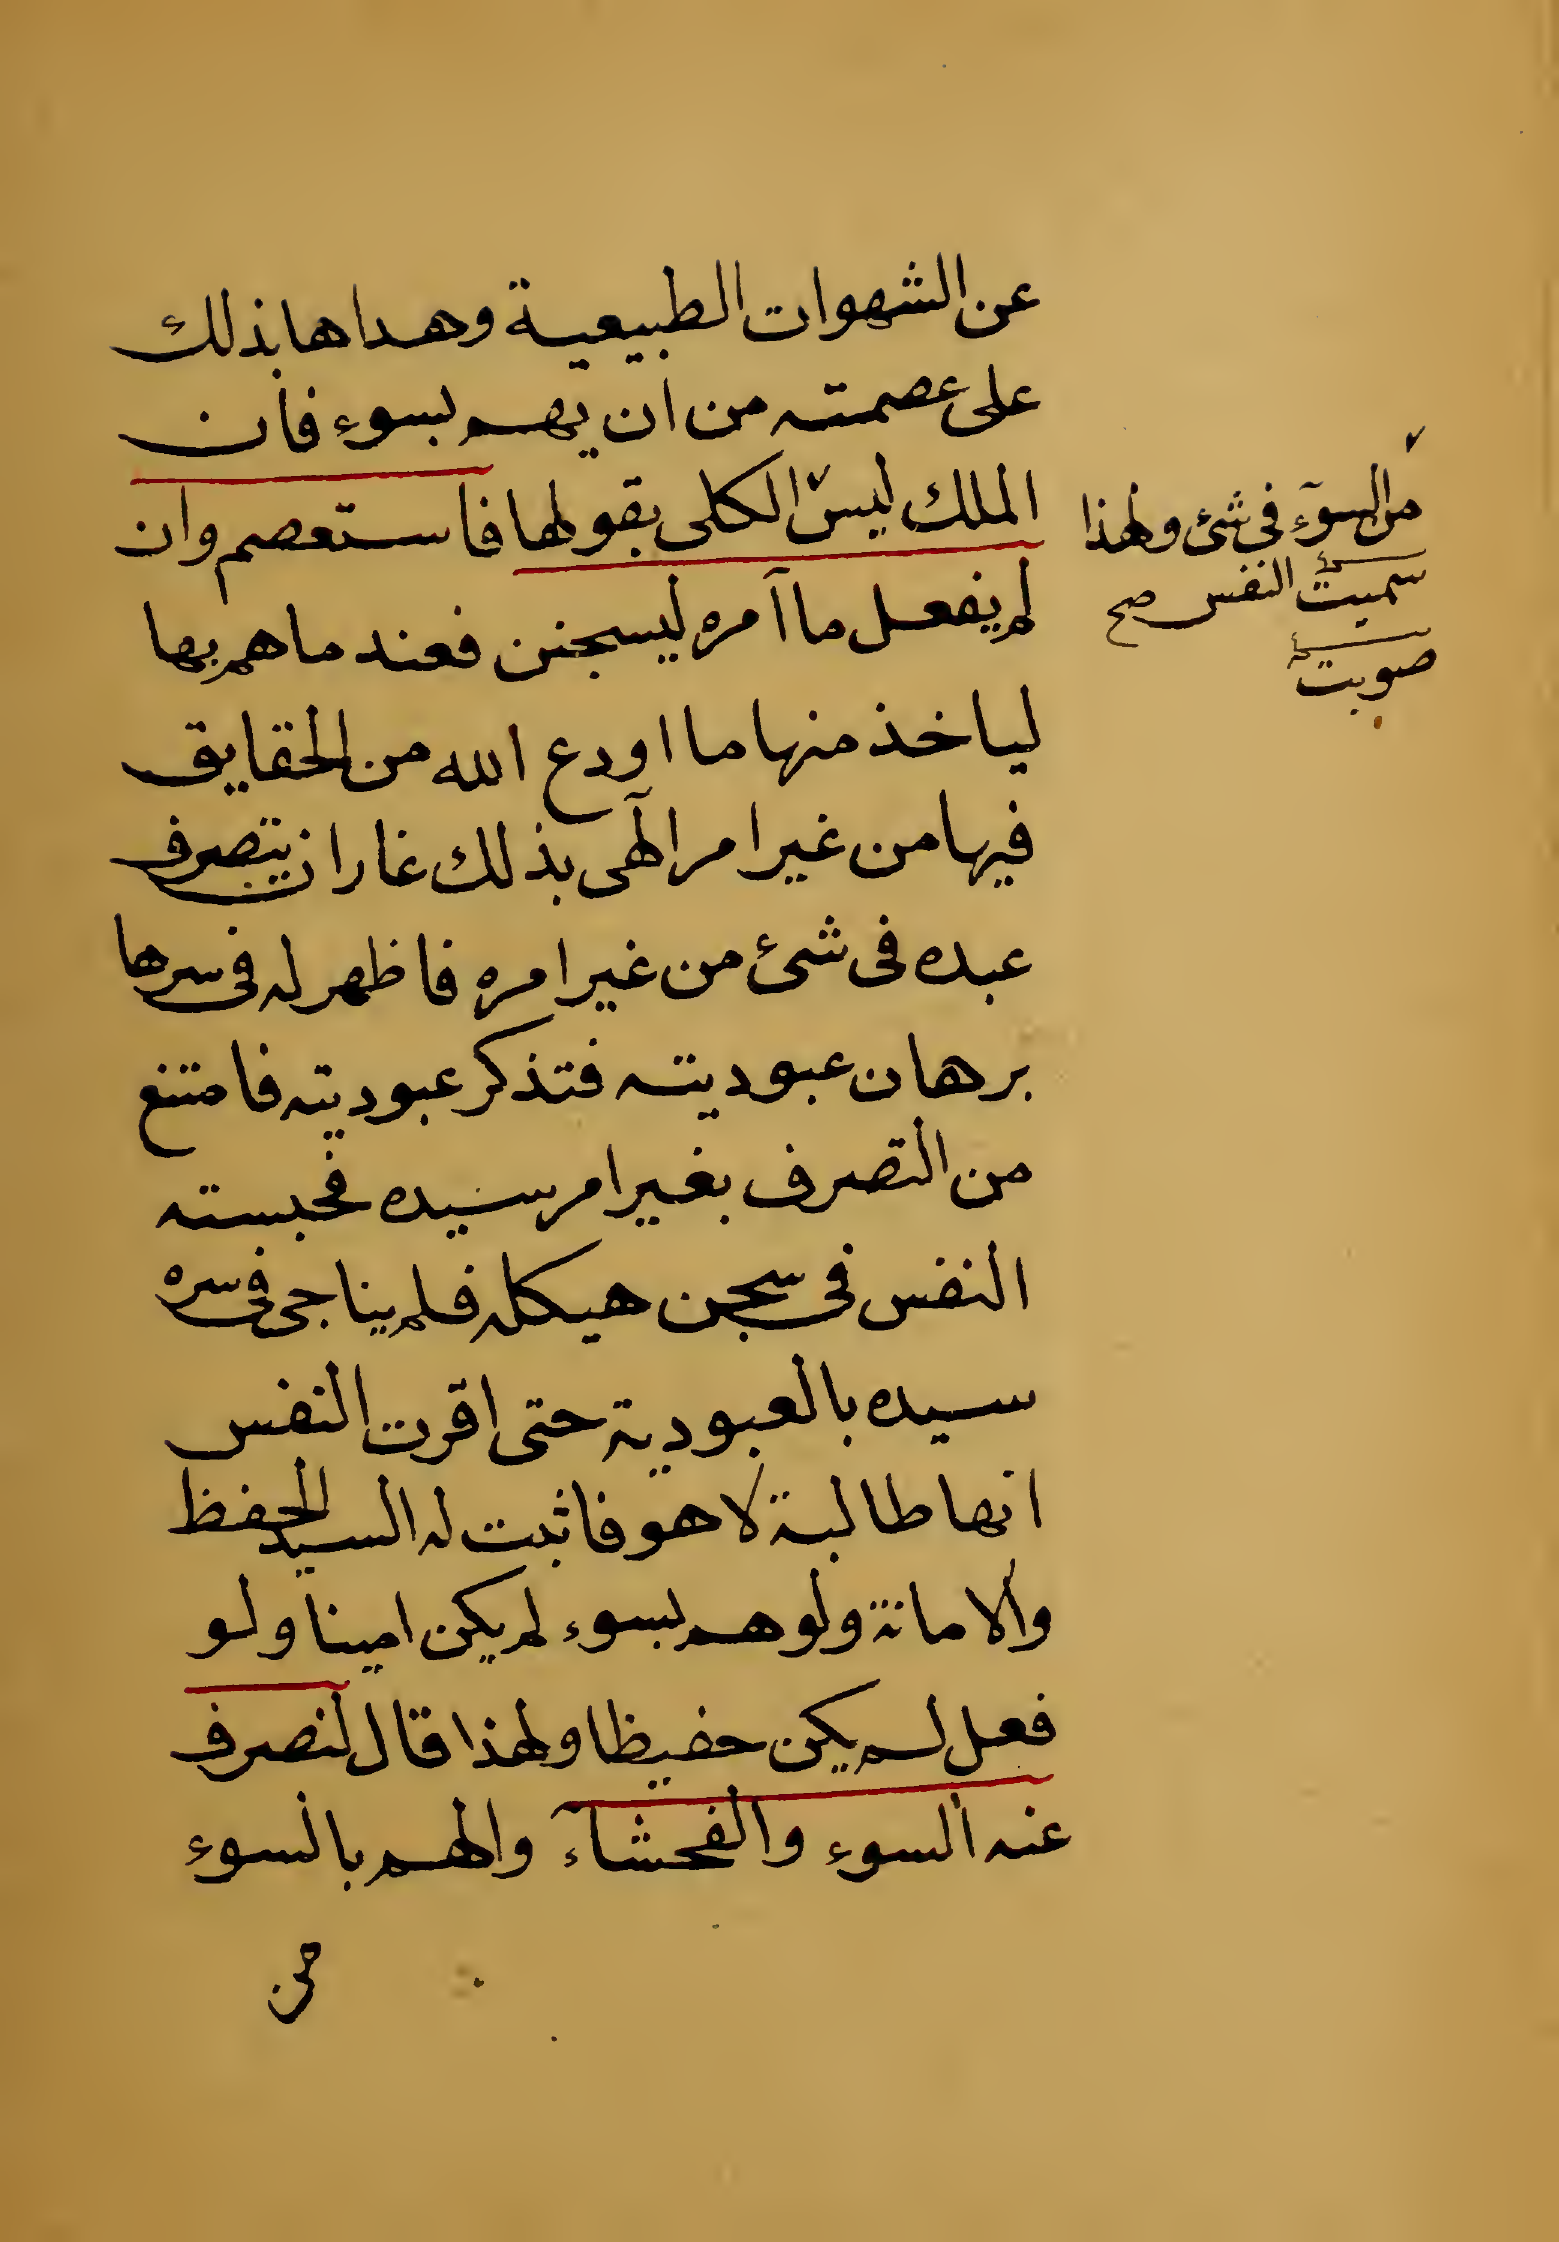 عن الشهوات الطبيعية وهداها بذلك
على عصمته من ان يهم بسوء فان
الملك ليس الكلى بقولها فاستعصم وان
لم يفعل ما آمره ليسجنن فعند ما هم بها
لياخذ منها ما اودع الله من الحقايق
فيها من غير امر آلهى بذلك غار ان يتصرف
عبده فى شئ من غير امره فاظهر له فى سرها
برهان عبوديته فتذكر عبوديته فامتنع
من التصرف بغير امر سيده فحبسته
النفس فى سجن هيكله فلم يناجى فى سره
سيده بالعبودية حتى اقرت النفس
انها طالبة لا هو فاثبت له السيد الحفظ
والامانة ولو هم بسوء لم يكن امينا ولو
فعل لم يكن حفيظا ولهذا قال لنصرف
عنه السوء والفحشآء والهم بالسوء
من
من السوء فى شئ ولهذا
سميت النفس صح
صوبت